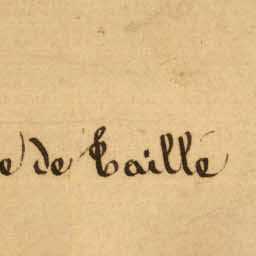 e de Taille